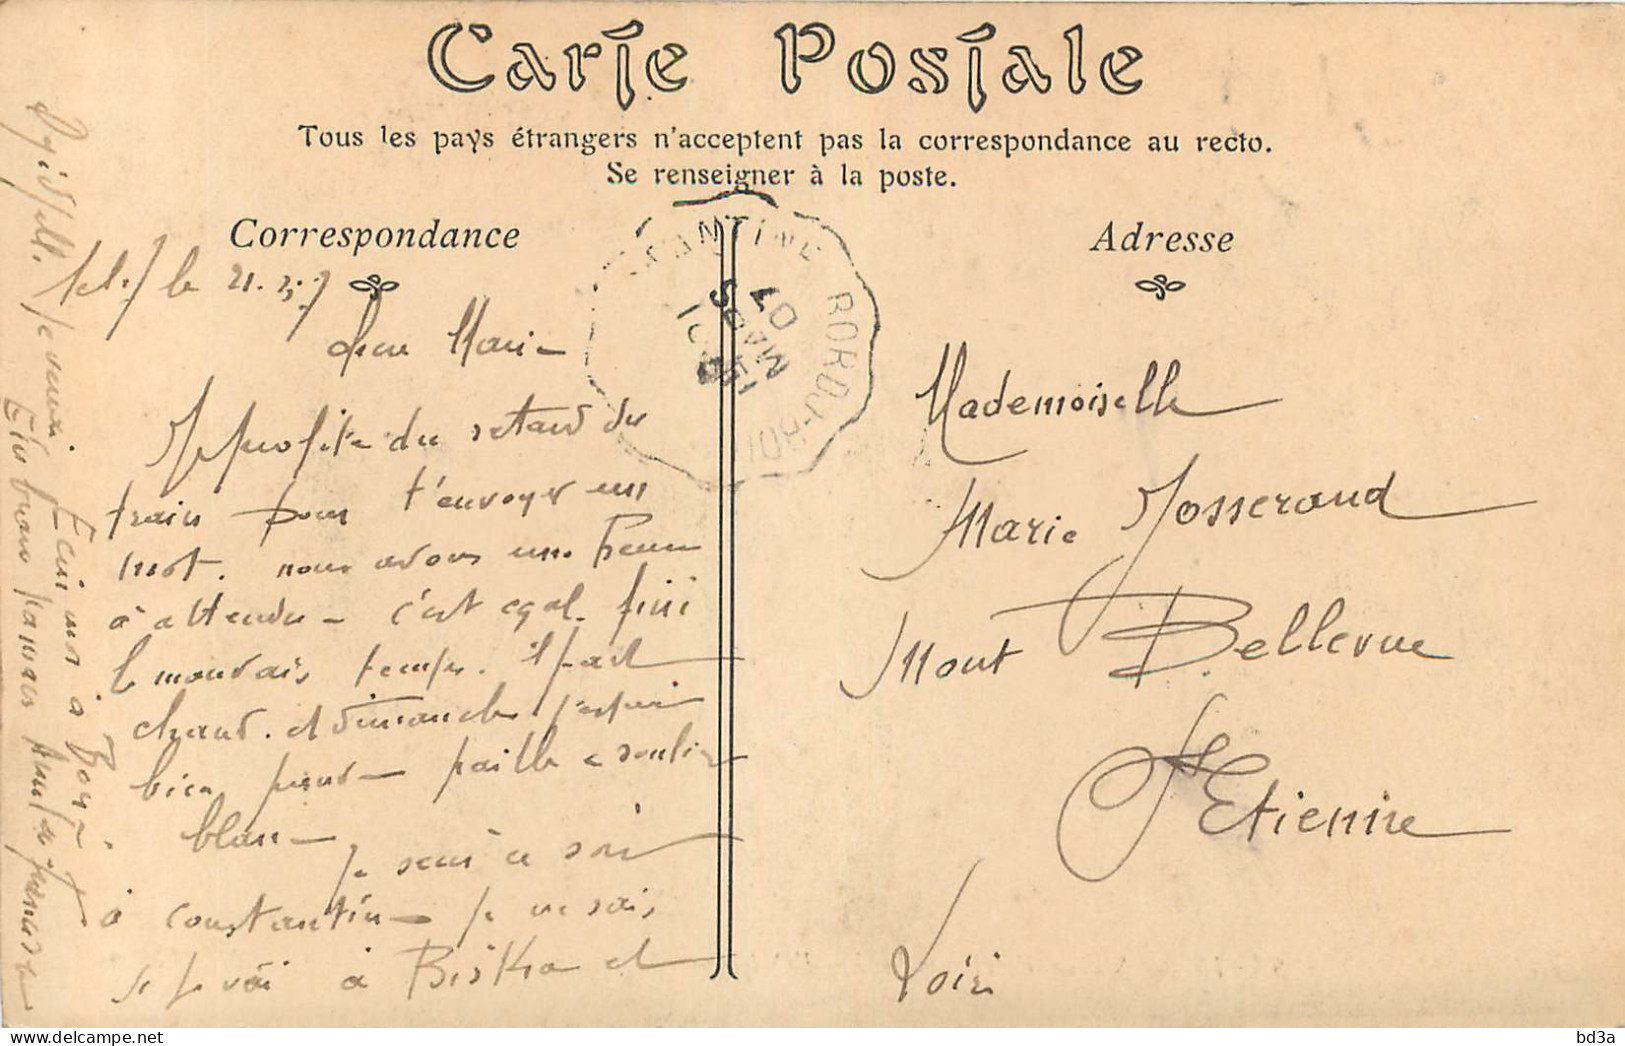 Carte Postale
Tous les pays étrangers n'acceptent pas la correspondance au recto.
Se renseigner à la poste.
Correspondance
Adresse
le 21.3.7
Chère Marie
Je profite du retard du
train pour t'envoyer un
mot. nous avons une heure
à attendre - c'est egal. fini
le mauvais temps. il fait
chaud. et dimanche j'espère
bien prendre paille et souliers
blancs
Je serai ce soir
à Constantine Je ne sais
si je vais à Biskra et
Je verrai. Ecris moi à
Embrasse
Mademoiselle
Marie Josserand
Mont Bellevue
St Etienne
Loire
CONSTANTINE
MARS
07
bd3a